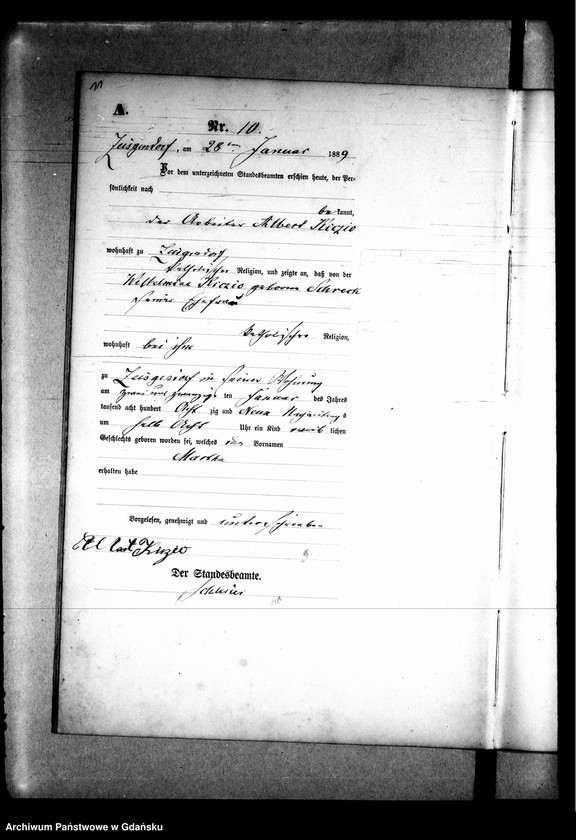 A.
Nr. 10.
Zeisgendorf, am 28ten Januar 1889
Vor dem unterzeichneten Standesbeamten erschien heute, der Per-
sönlichkeit nach
be kannt,
der Arbeiter Albert Kiczio
wohnhaft zu Zeisgendorf,
katholischer Religion, und zeigte an, daß von der
Wilhelmine Kiczio geborne Schreck
seiner Ehefrau
katholischer Religion,
wohnhaft bei ihm
zu Zeisgendorf in seiner Wohnung
am zwei und zwanzigs ten Januar des Jahres
tausend acht hundert Acht zig und Neun Nachmittags
um halb Acht Uhr ein Kind weib lichen
Geschlechts geboren worden sei, welches den Vornamen
Martha
erhalten habe
Vorgelesen, genehmigt und unterschrieben
Der Standesbeamte.
Archiwum Państwowe w Gdańsku